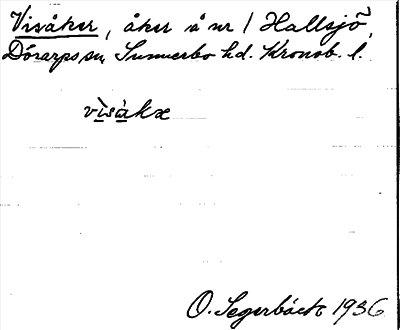 Visåker, åker å nr 1 Hallsjö,
Dörarps sn, Sunnerbo hd. Kronob. l.
vìsàkx
O. Segerbäck 1936